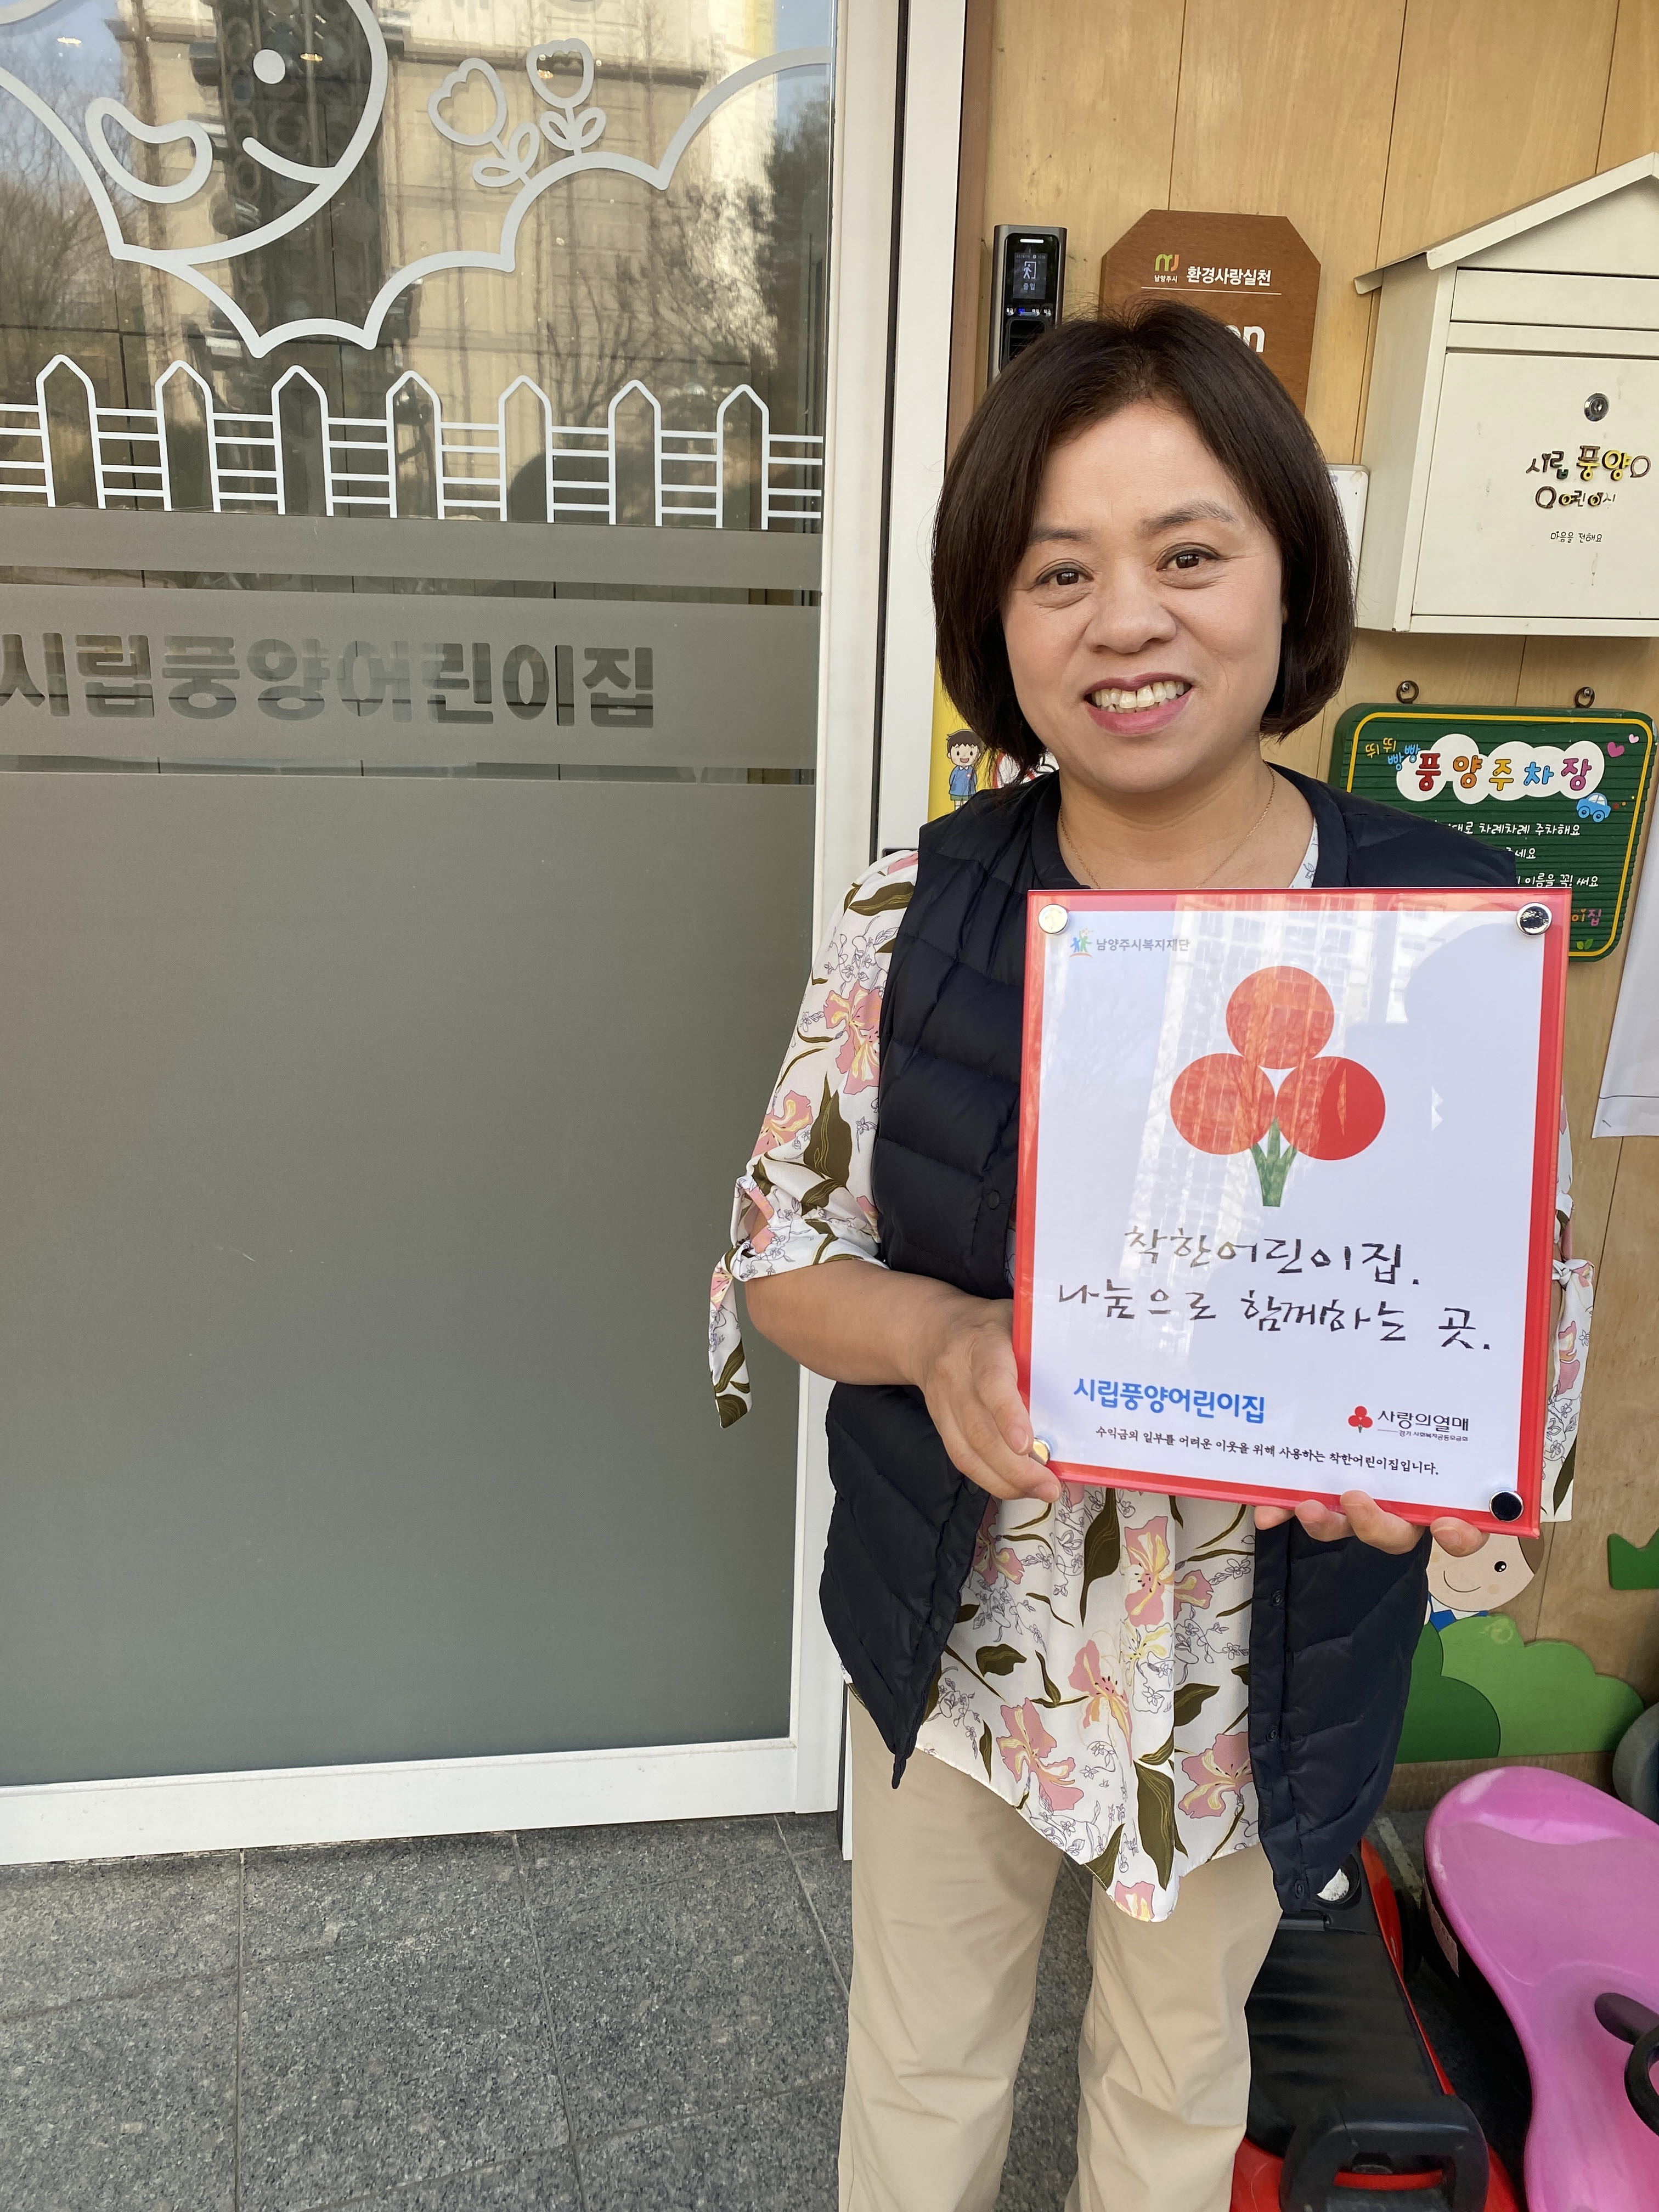 남양주시
환경사랑실천
시립 풍양
어린이
마음을 전해요
시립풍양어린이집
뛰뛰
빵빵
풍양주차장
대로 차례차례 주차해요
세요
이름을 꼭! 써요
이집
남양주시복지재단
착한어린이집.
나눔으로 함께하는 곳.
시립풍양어린이집
사랑의열매
경기 사회복지공동모금회
수익금의 일부를 어려운 이웃을 위해 사용하는 착한어린이집입니다.